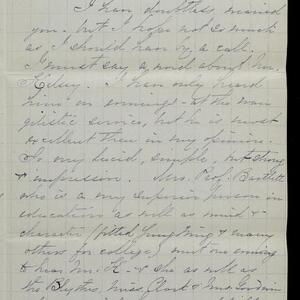 I have doubtless wearied
you - but I hope not so much
as I should have by a call.
I must say a word about Mr.
Kelsey. I have only heard
him on evenings - at the evan
gelistic service, but he is most
excellent then in my opinion.
So very lucid, simple, but strong
& impression. Mrs. Prof. Bartlett
who is a very superior person in
education as well as mind &
character (fitted Yung Wing & many
others for college) went one evening
to hear Mr. K - & she as well as
the Blythes, Miss Clark & Mrs. Goodwin